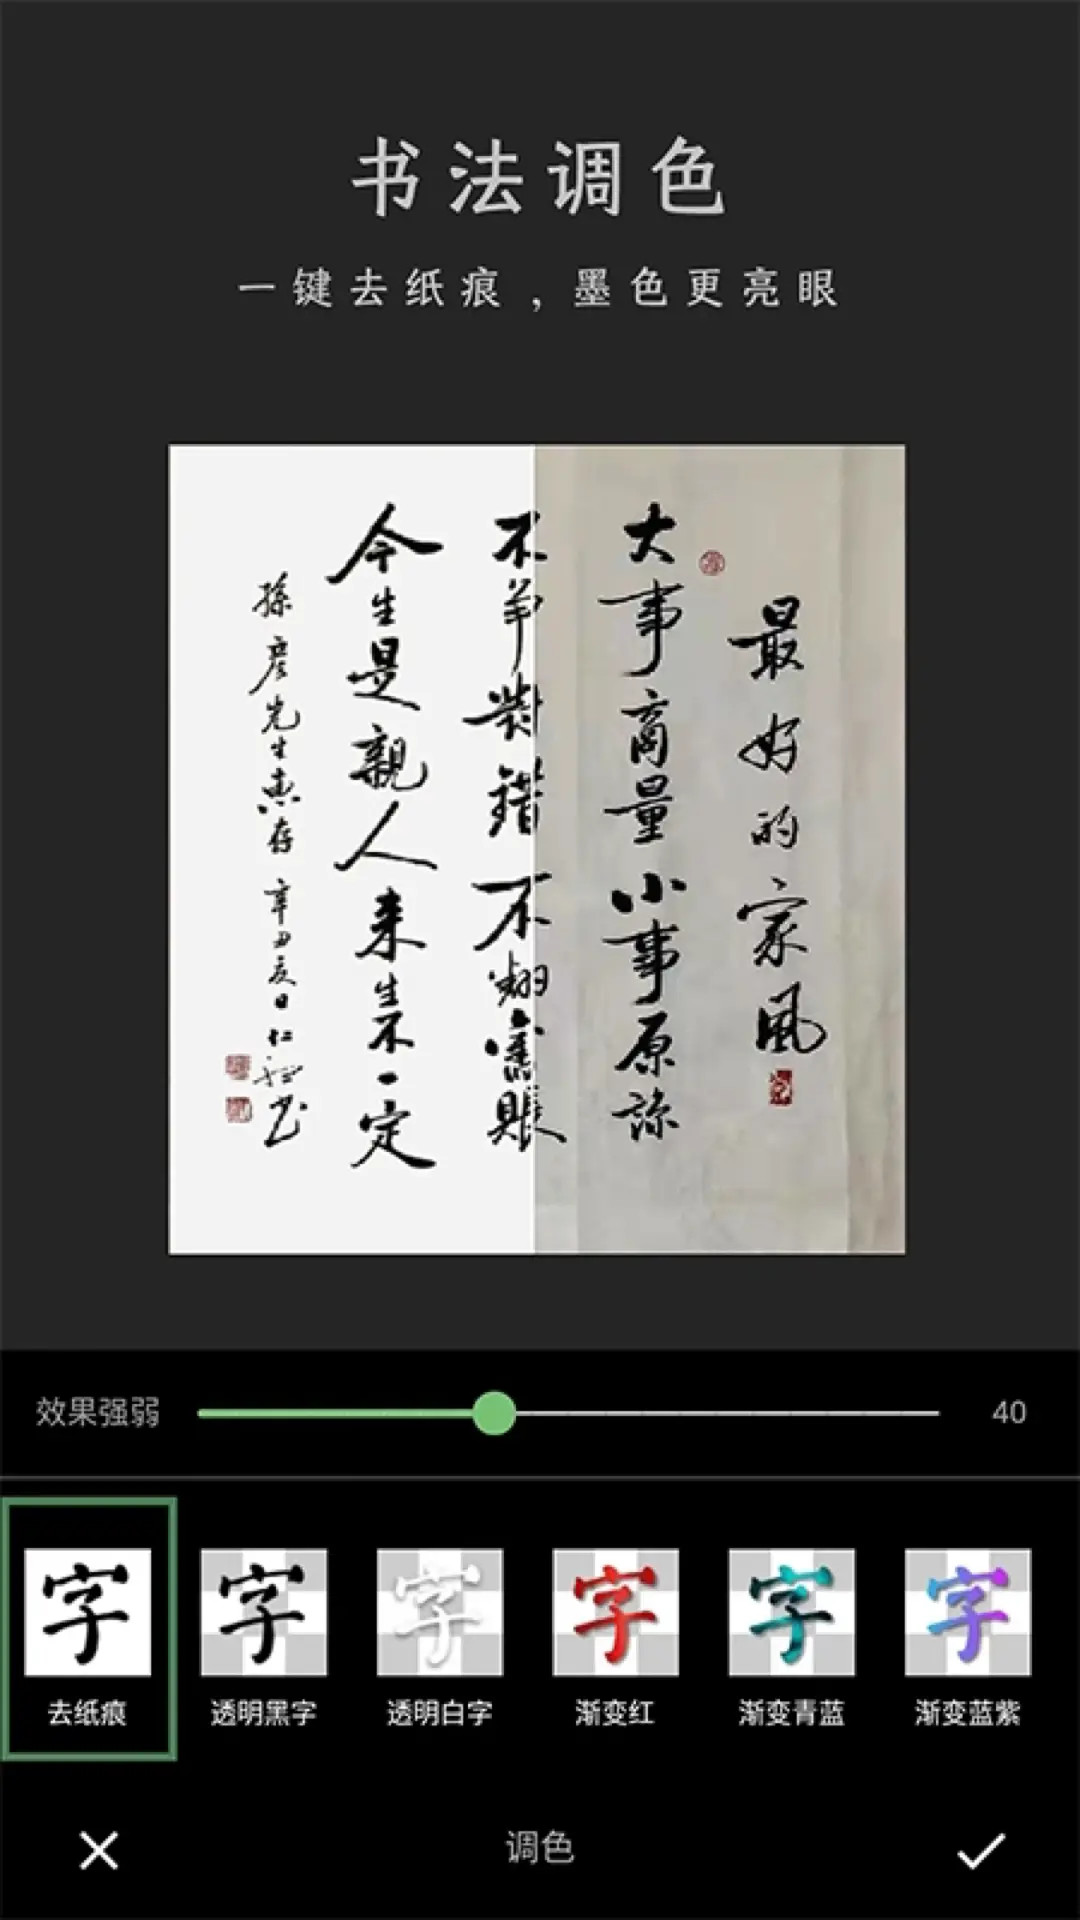 书法调色
一键去纸痕，墨色更亮眼
最好的家風
大事商量小事原諒
不争對錯不翻舊賬
今生是親人来生不一定
孫彦先生惠存 辛丑亥日仁
效果强弱 40
去纸痕 透明黑字 透明白字 渐变红 渐变青蓝 渐变蓝紫
调色